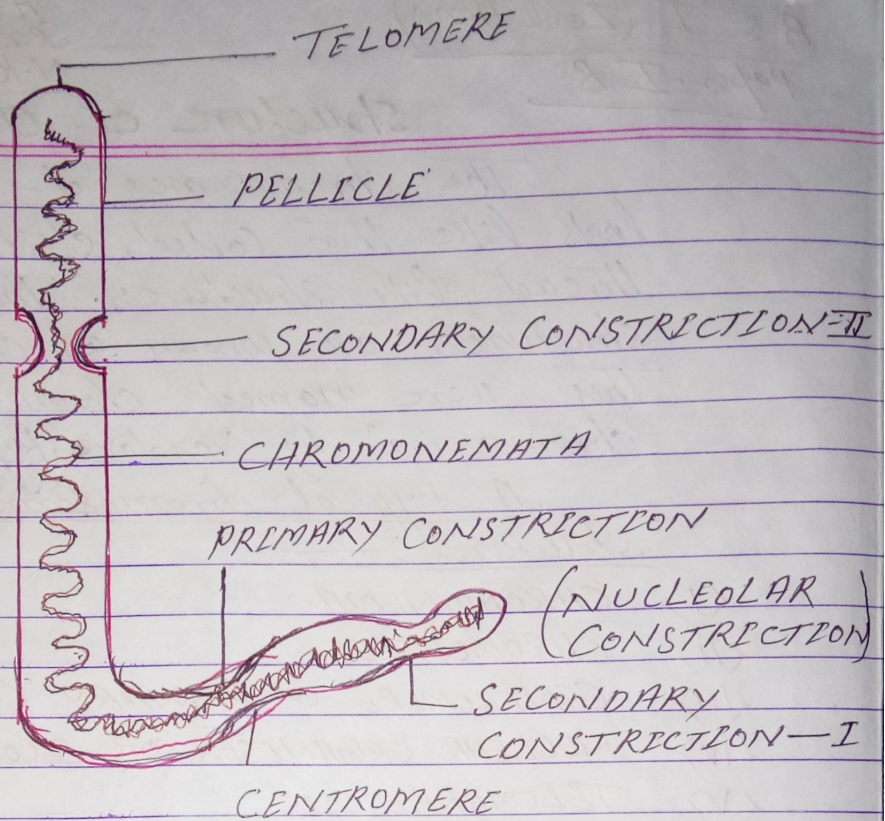 TELOMERE
PELLICLE
SECONDARY CONSTRICTION-II
CHROMONEMATA
PRIMARY CONSTRICTION
(NUCLEOLAR
CONSTRICTION)
SECONDARY
CONSTRICTION—I
CENTROMERE